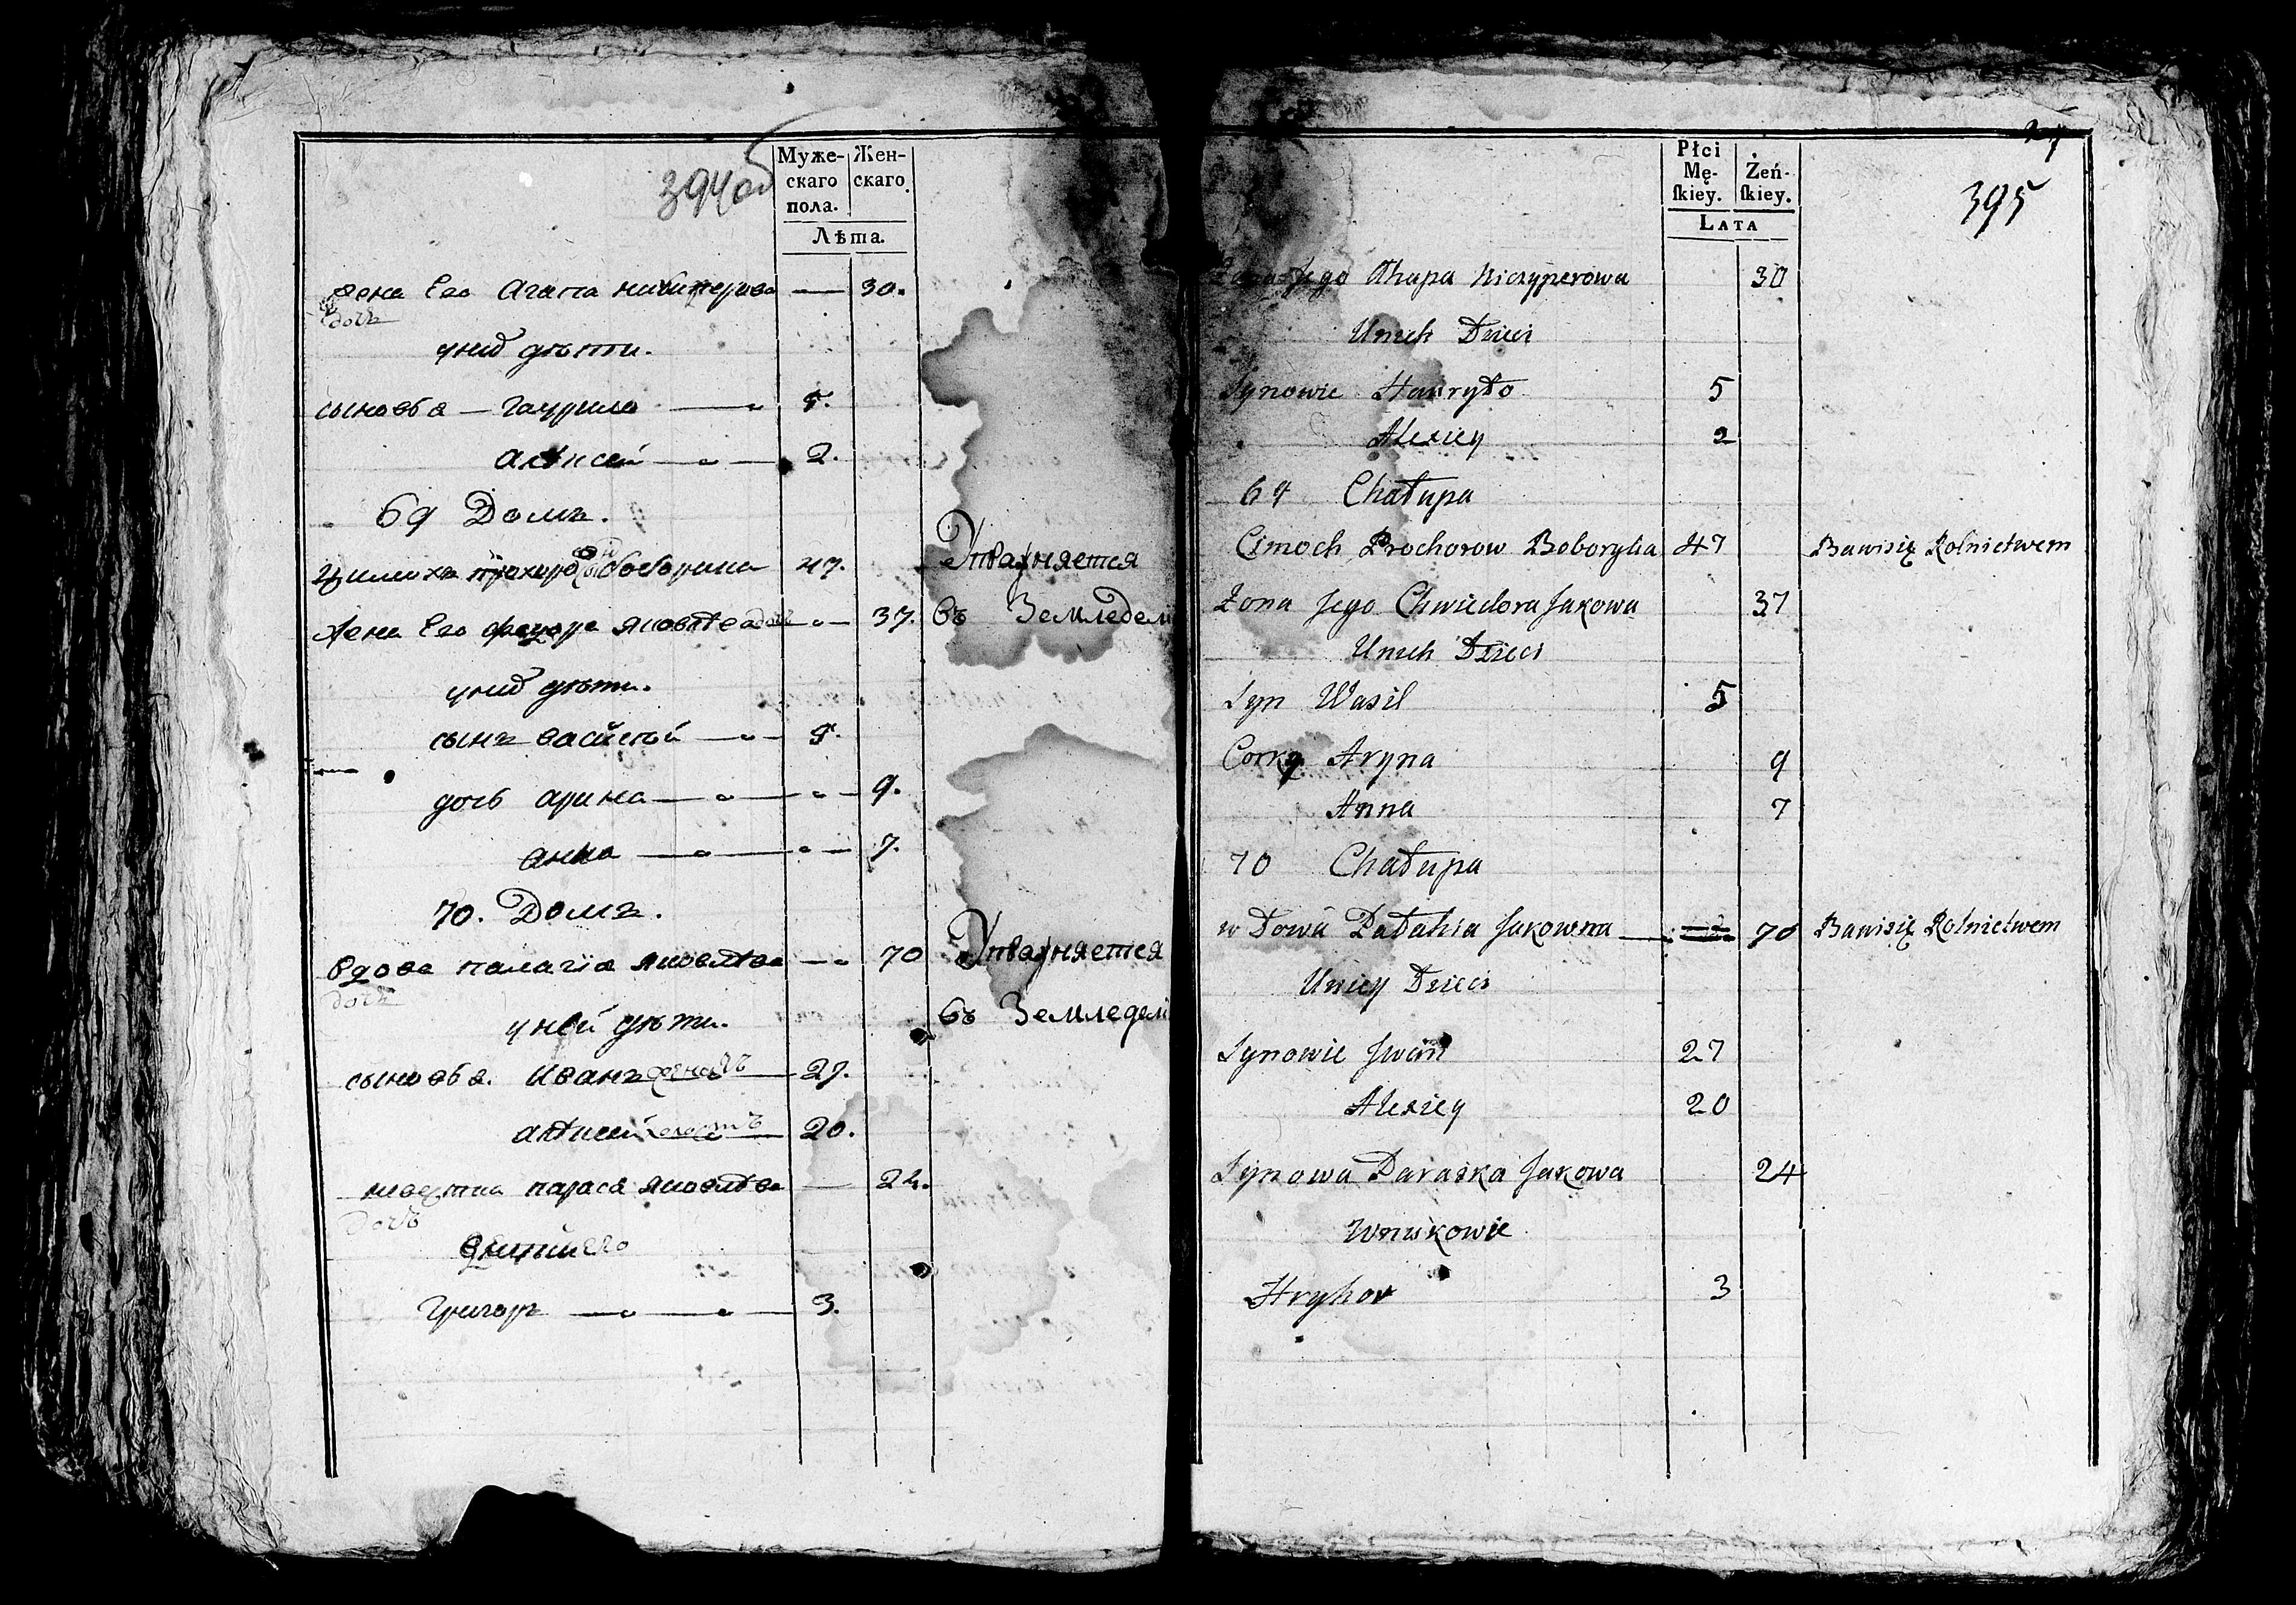 394 об
Муже-
скаго
пола.
Жен-
скаго.
Лѣта.
жена Его Агапа ничиперова — 30.
дочь
у них дѣти.
сыновья — гаурило — 5.
алексей — 2.
69 Домъ.
цимохъ прохоров боборыка 47. Упражняется
Жена Его федора яковлева дочь — 37. въ Земледели
у них дѣти.
сынъ василей — 5.
дочь арина — 9.
анна — 7.
70. Домъ.
вдова палагія яковлева — 70 Упражняется
дочь
у ней дѣти. въ Земледели
сыновья. иванъ женатъ — 27.
алексей холостъ — 20.
невестка параса яковлева — 24.
дочь
дети его
григоръ — 3.
27
395
Płci
Mę-
ſkiey.
Żeń-
ſkiey.
Lata
Żona Jego Ahapa Niczyperowa 30
Unich Dzieci
Synowie Hawryło 5
Alexiey 2
69 Chałupa
Cimoch Prochorow Boboryka 47 Bawisię Rolnictwem
Żona Jego Chwiedora Jakowa 37
Unich Dzieci
Syn Wasil 5
Corky Aryna 9
Anna 7
70 Chałupa
wdowa Pałahia Jakowna — 70 Bawisię Rolnictwem
Uniey Dzieci
Synowie Jwan 27
Alexiey 20
Synowa Paraska Jakowa 24
Wnukowie
Hryhor 3